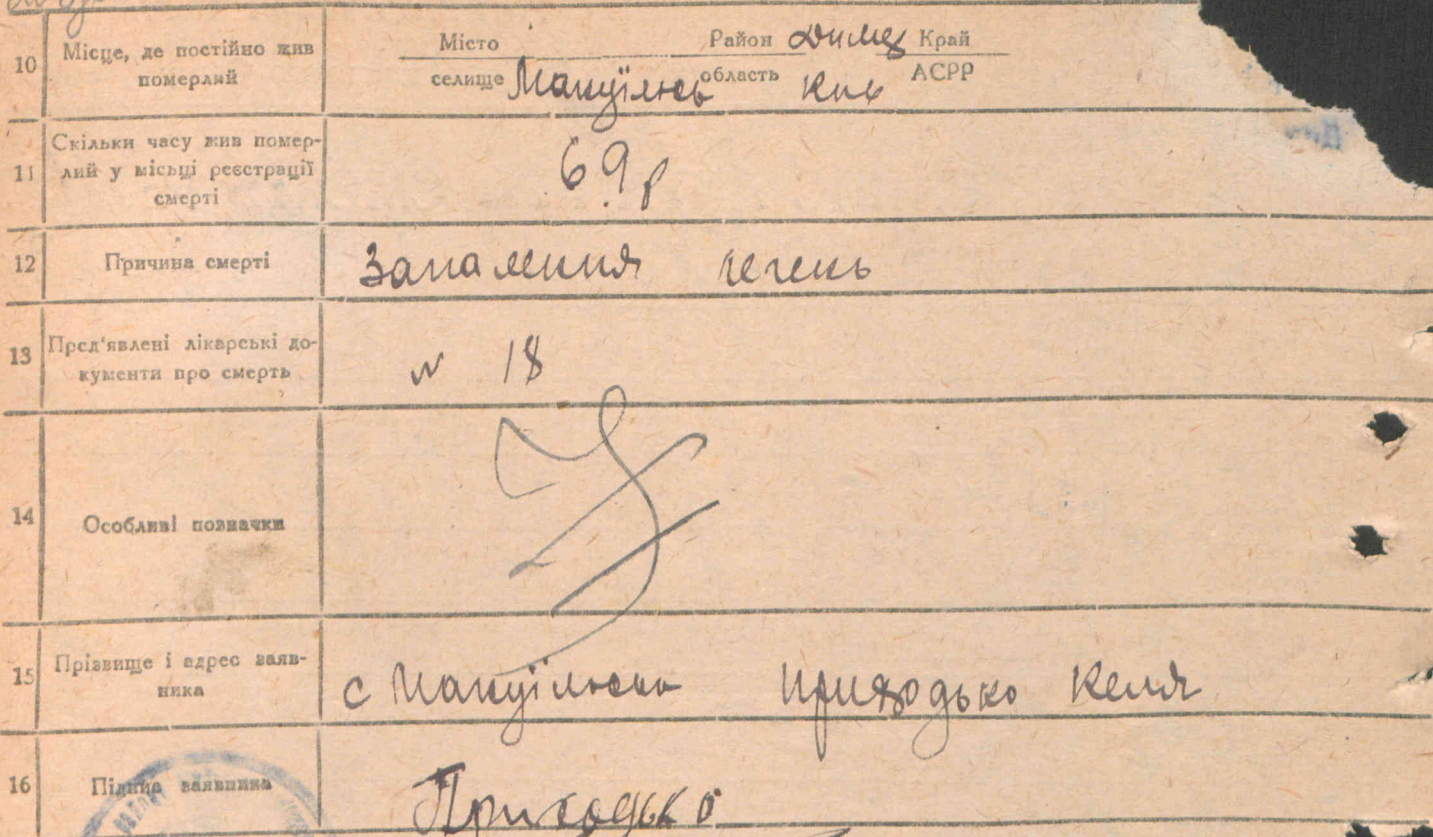 10 Місце, де постійно жив
померлий
Місто Район Димер Край
селище Мануїлськ область Киів АСРР
11 Скільки часу жив помер-
лий у місьці реєстрації
смерті
69 р
12 Причина смерті
Запалення легень
13 Пред'явлені лікарські до-
кументи про смерть
№ 18
14 Особливі позначки
15 Прізвище і адрес заяв-
ника
с Приходько
16 Підпис заявника
Приходько